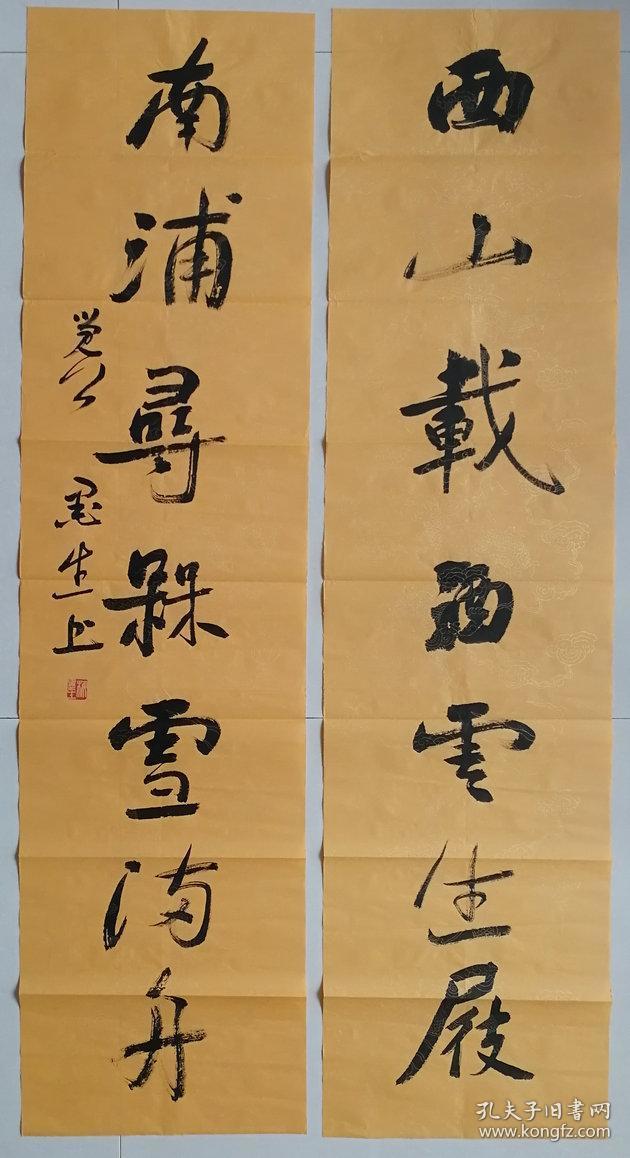 西山載酒雲生屐
南浦尋槑雪滿舟
觉公 墨生上
孔夫子旧書网
www.kongfz.com